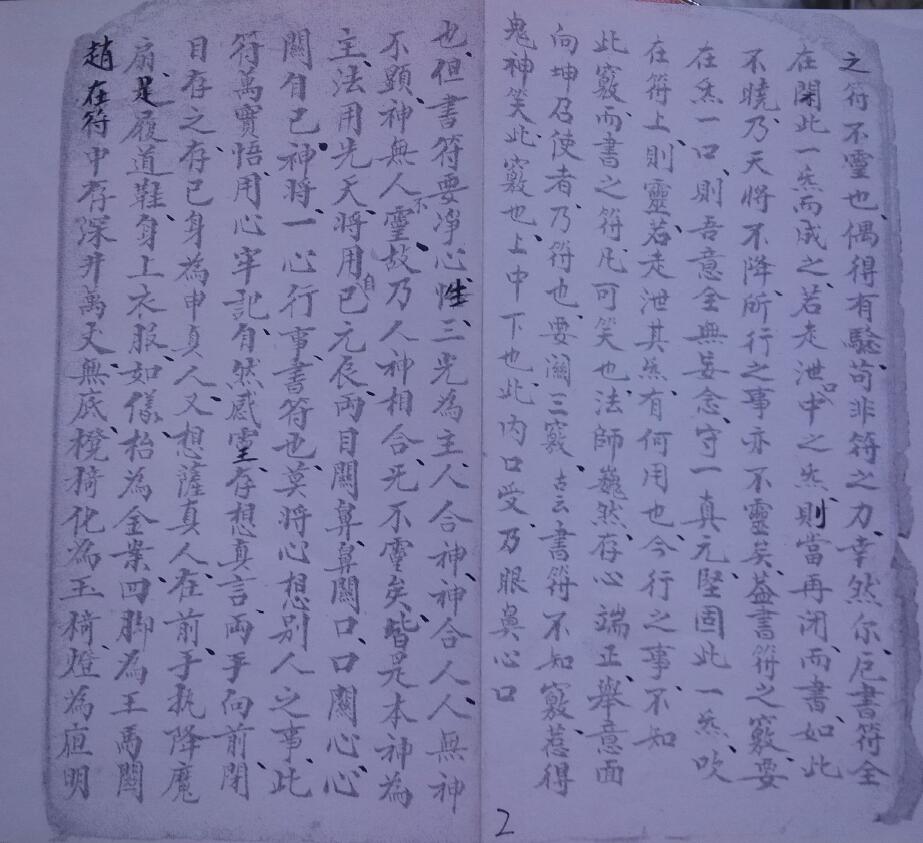 之符不靈也、偶得有驗、苟非符之力、幸然尔、凡書符全
在閉此一炁而成之、若走泄口中之炁、則當再闭、而書如此
不曉、乃天將不降、所行之事亦不靈矣、盖書符之竅、要
在炁一口、則吾意全無妄念、守一真元、堅固此一炁、吹
在符上、則靈、若走泄其炁、有何用也、今行之事、不知
此竅、而書之符、凡可笑也、法師巍然、存心端正、舉意面
向坤召使者、乃符也、要闗三竅、古云書符不知竅、惹得
鬼神笑、此竅也、上中下也、此内口受、乃眼鼻心口
2
也、但書符要净心性、三光為主、人合神、神合人、人無神
不顕、神無人不靈、故乃人神相合、旡不靈矣、皆是本神為
主、法用先天、將用自己元辰、両目關鼻、鼻關口、口關心、心
關自己神將、一心行事、書符也、莫將心想別人之事、此
符萬寳悟、用心牢記、自然感靈、存想真言、両手向前、闭
目存之、存己身為申真人、又想薩真人、在前、手执降魔
扇、是履道鞋、身上衣服、如儀、枱為金案、四脚為王馬關
趙在符中存深井萬丈、無底、櫈椅化為玉椅、燈為
明